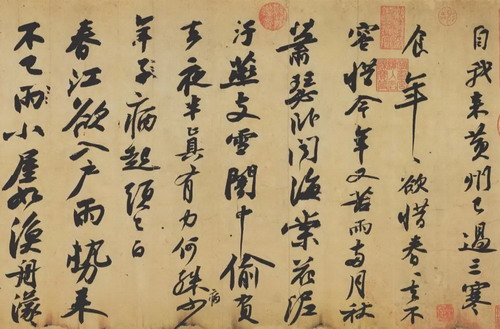 自我来黄州已過三寒
食年〻欲惜春〻去不
容惜今年又苦雨兩月秋
蕭瑟卧聞海棠花泥
汙燕支雪闇中偷負
去夜半真有力何殊病少
年子病起須已白
春江欲入户雨勢来
不已雨小屋如漁舟濛